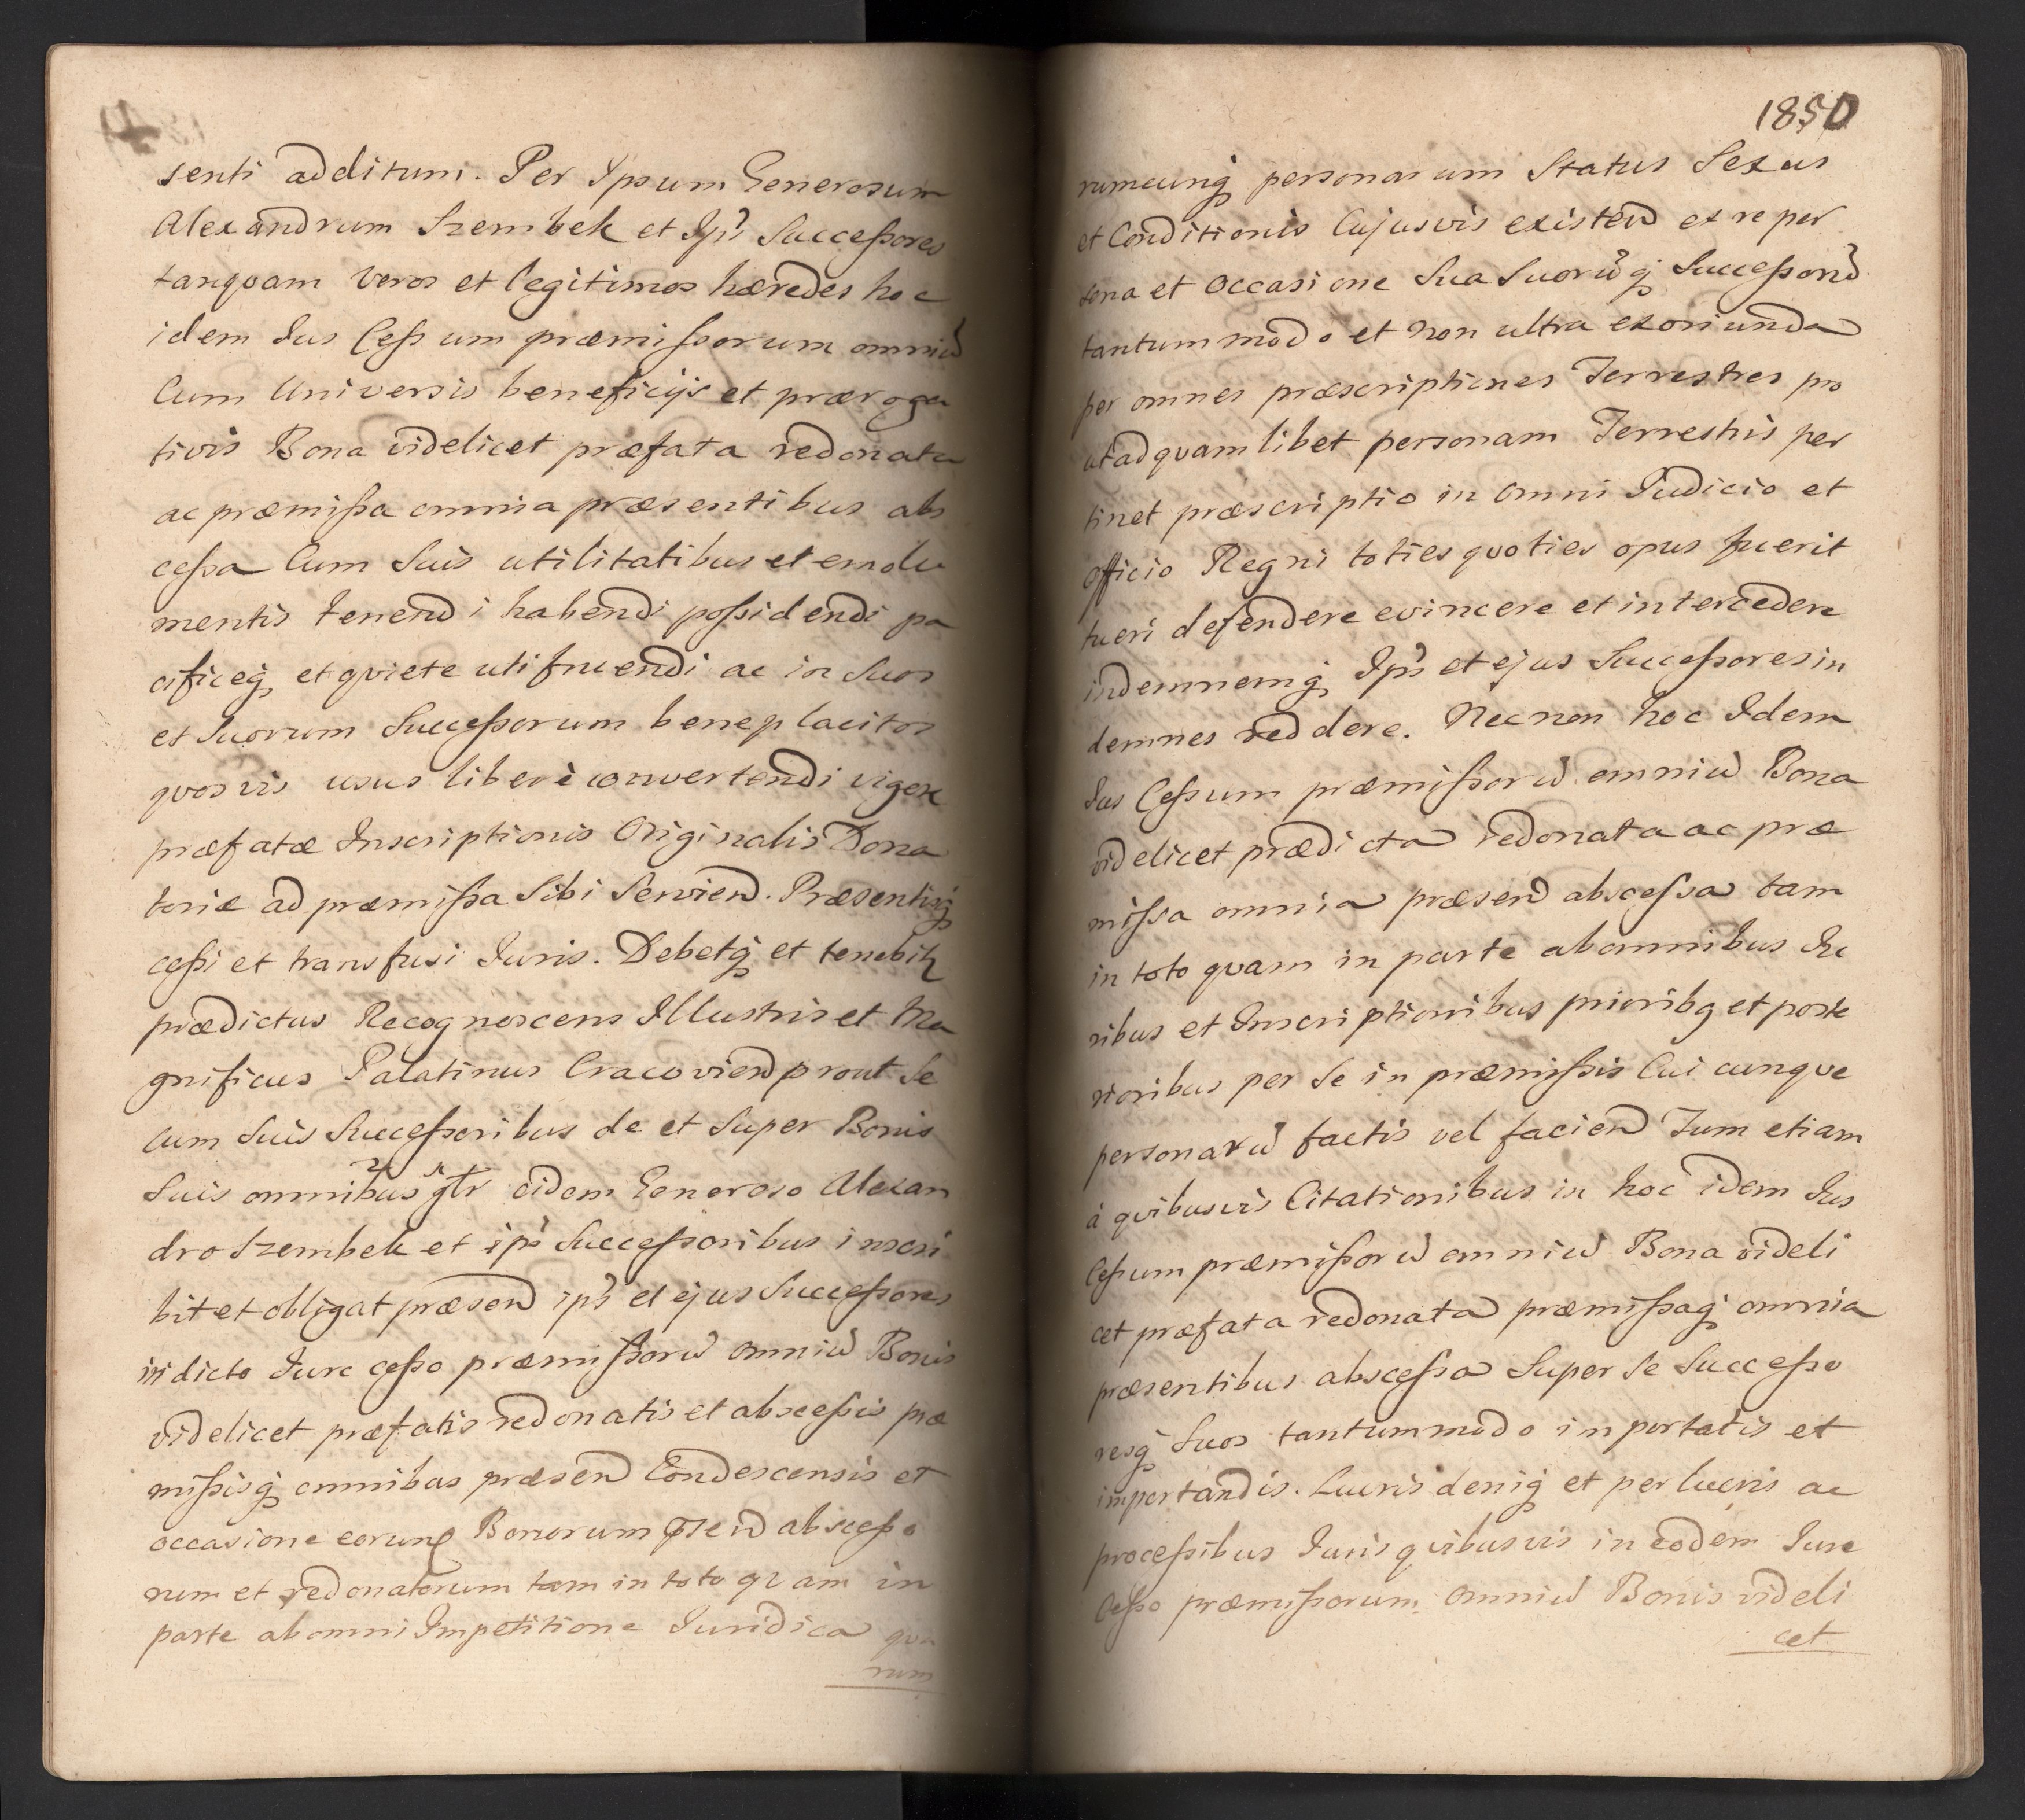 senti additum. Per Ypsum Generosum
Alexandrum Szembek et Ips Successores
tanquam veros et legitimos hæredes hoc
idem Jus Cessum præmissorum omniu
Cum Universis beneficijs et præroga
tivis Bona videlicet præfata redonata
ac præmissa omnia præsentibus abs
cessa Cum Suis utilitatibus et emolu
mentis tenendi habendi possidendi pa
cificeq et qviete uti fruendi ac in Suos
et Suorum Successorum beneplacitos
qvosvis usus liberè convertendi vigore
præfatæ Inscriptionis Originalis Dona
toriæ ad præmissa Sibi Serviend. Præsentisq
cessi et transfusi Juris. Debetq et tenebit
prædictus Recognoscens Illustris et Ma
gnificus Palatinus Cracoviend prout Se
cum Suis Successoribus de et Super Bonis
Suis omnibus gtr eidem Generoso Alexan
dro Szembek et ips Successoribus inscri
bit et obligat præsend ips et ejus Successores
in dicto Jure cesso præmissoru omniu Bonis
videlicet præfatis redonatis et abscessis præ
missisq omnibus præsend Condescensis et
occasione eorund Bonorum psend abscesso
rum et redonatorum tam in toto qvam in
parte ab omni Impetitione Juridica qvo
rum
1850
rumcunq personarum Status Sexus
et Conditionis Cujusvis existend ex re per
sona et Occasione Sua Suoruq Successord
tantummodo et non ultra exoriunda
per omnes præscriptiones Terrestres pro
ut ad qvamlibet personam Terrestris per
tinet præscriptio in Omni Judicio et
Officio Regni toties qvoties opus fuerit
tueri defendere evincere et intercedere
indemnemq Ips et ejus Successores in
demnes reddere. Nec non hoc Idem
Jus Cessum præmissoru omniu Bona
videlicet prædicta redonata ac præ
missa omnia præsend abscessa tam
in toto qvam in parte ab omnibus Ju
ribus et Inscriptionibus prioribq et poste
rioribus per Se in præmissis Cuicunqve
personaru factis vel faciend Tum etiam
à qvibusvis Citationibus in hoc idem Jus
Cessum præmissoru omniu Bona videli
cet præfata redonata præmissaq omnia
præsentibus abscessa Super Se Successo
resq Suos tantummodo inportatis et
importandis. Lucris deniq et perlucris ac
processibus Juris qvibusvis in eodem Jure
Cesso præmissorum Omniu Bonis videli
cet